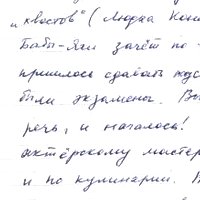 и квостов" (Людаа Кон
Бабы-Яги зачёт по -
пришлось сдавать жус
были экзамены. Вы
речь, и началось!
актёрскому мастер
и по кулинарии. В